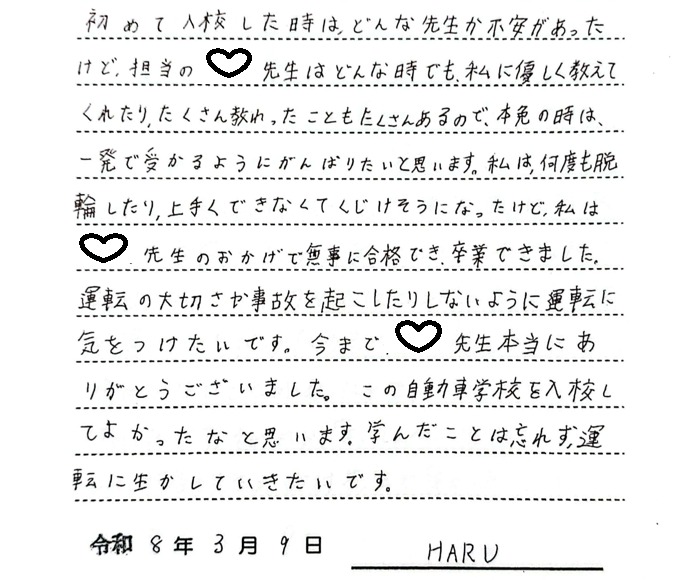 初めて入校した時は、どんな先生か不安があった
けど、担当の 先生はどんな時でも、私に優しく教えて
くれたり、たくさん教わったこともたくさんあるので、本免の時は、
一発で受かるようにがんばりたいと思います。私は、何度も脱
輪したり、上手くできなくてくじけそうになったけど、私は
先生のおかげで無事に合格でき、卒業できました。
運転の大切さや事故を起こしたりしないように運転に
気をつけたいです。今まで、 先生本当にあ
りがとうございました。 この自動車学校を入校し
てよかったなと思います。学んだことは忘れず、運
転に生かしていきたいです。
令和 8 年 3 月 9 日 HARU